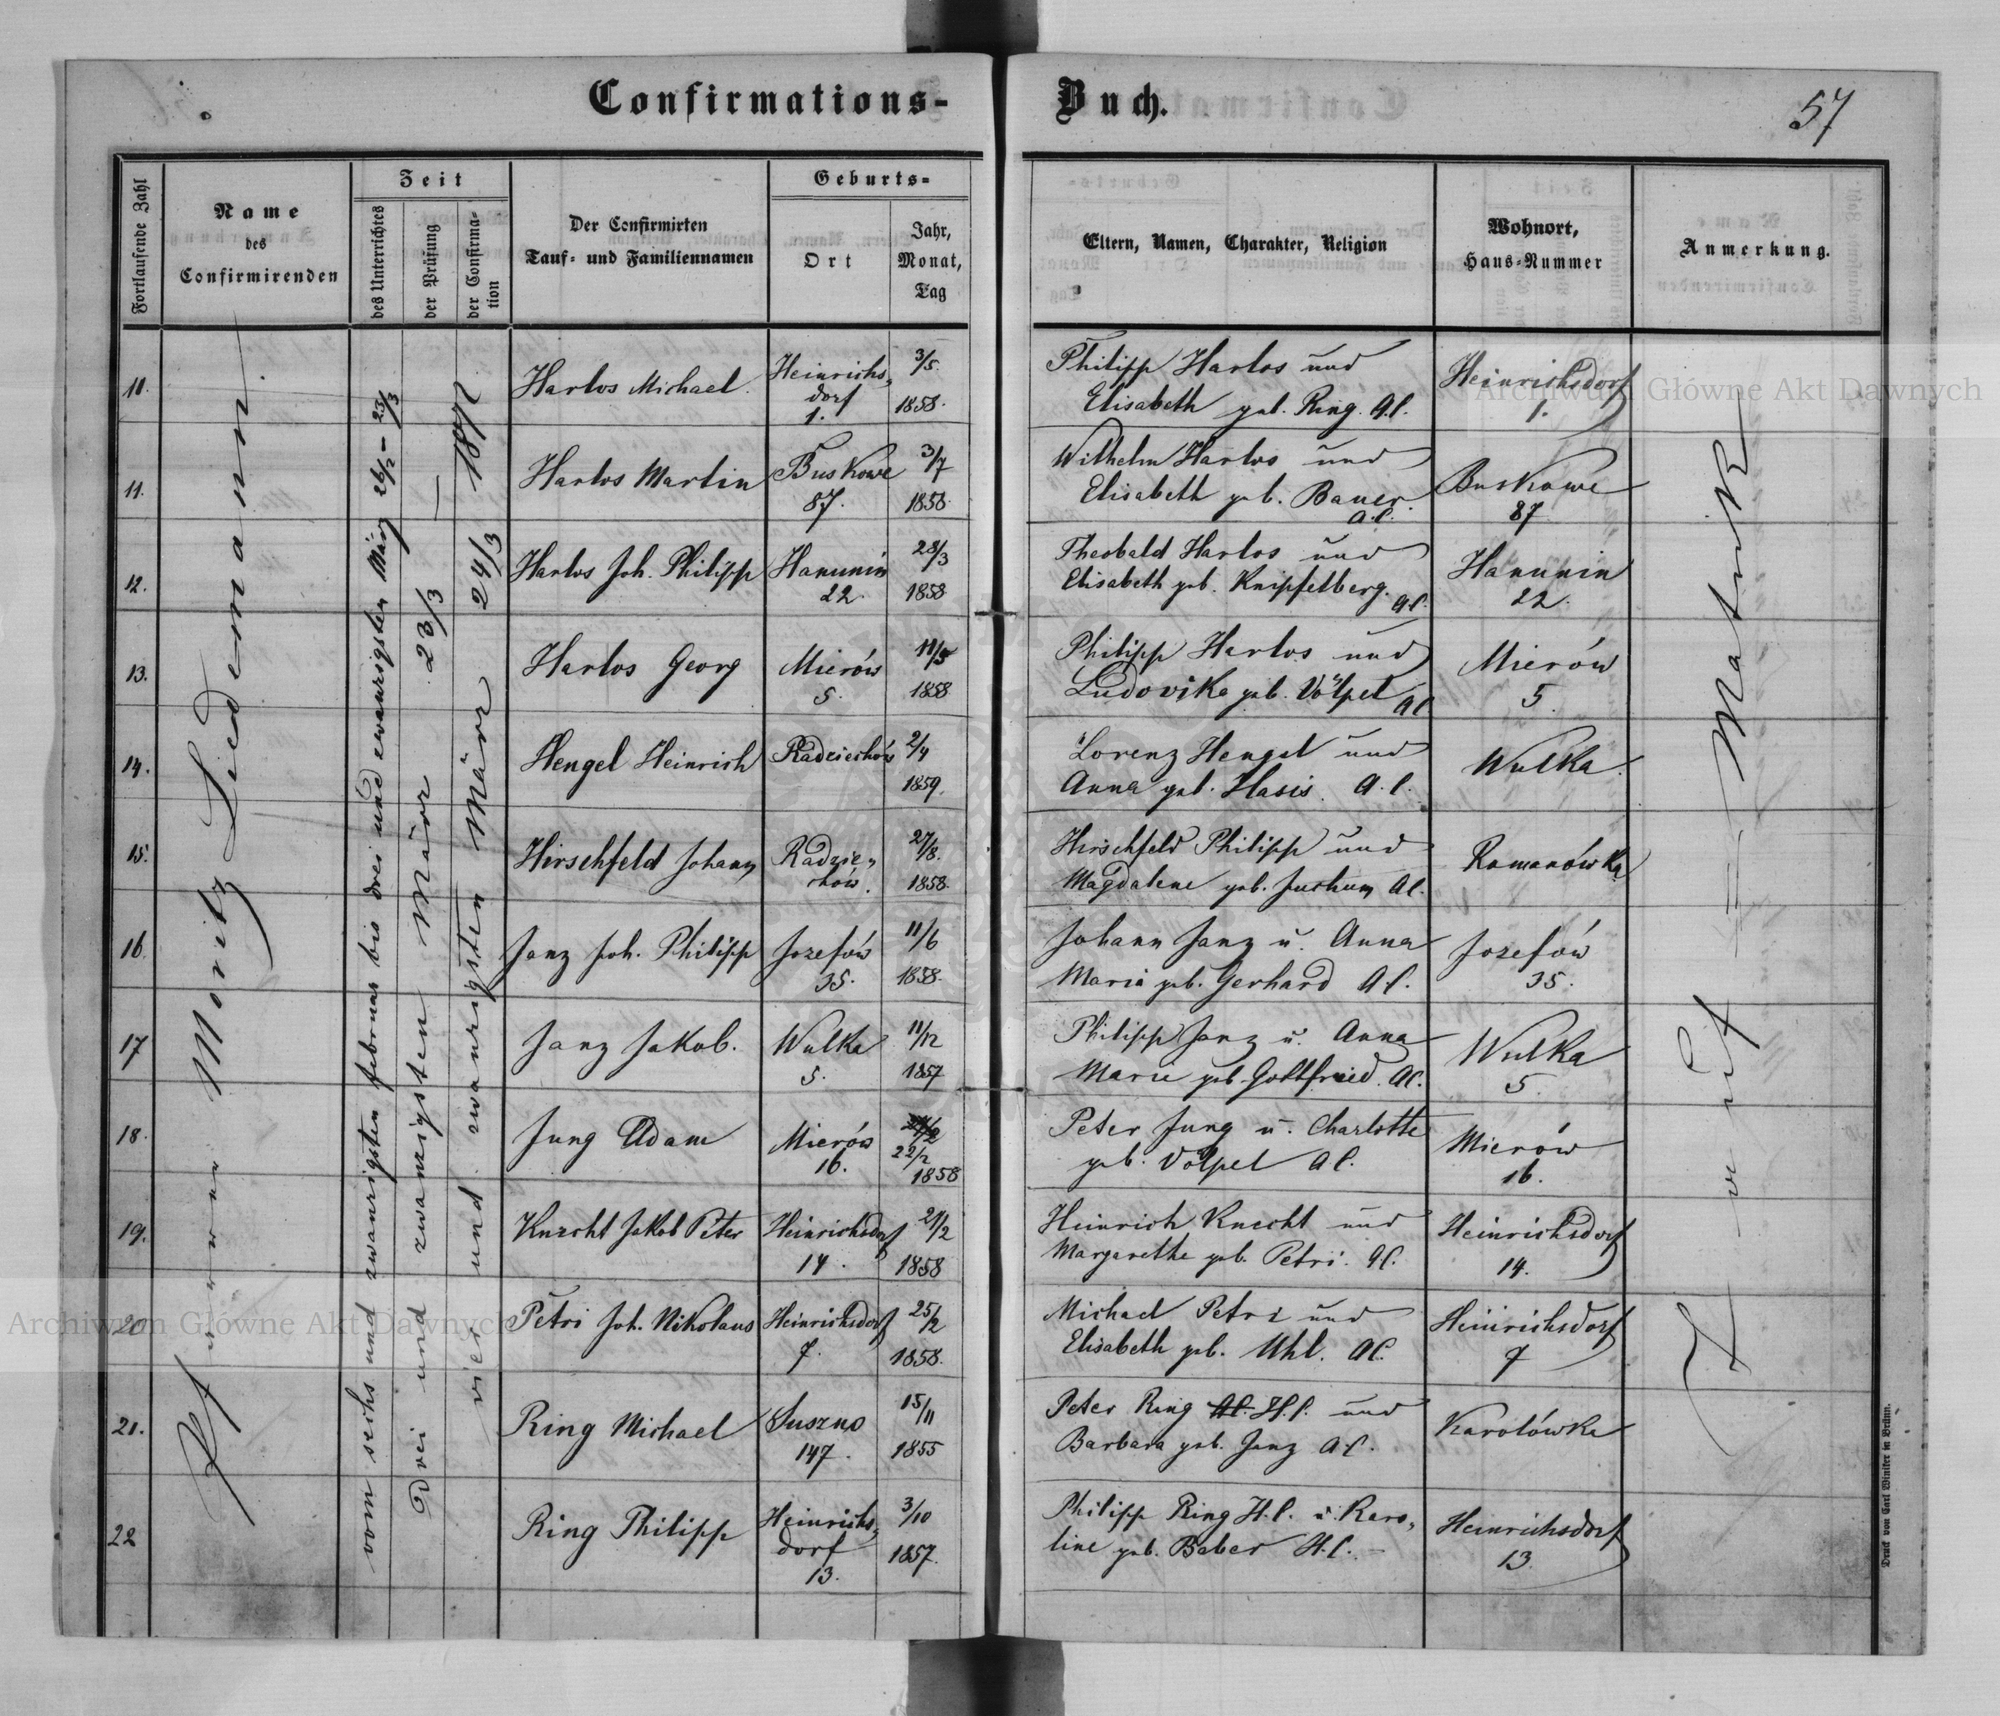 Confirmations-Buch.
57
Fortlaufende Zahl
Name
des
Confirmirenden
Zeit
des Unterrichtes
der Prüfung
der Confirma-
tion
Der Confirmirten
Tauf- und Familiennamen
Geburts-
Ort
Jahr,
Monat,
Tag
Eltern, Namen, Charakter, Religion
Wohnort,
Haus-Nummer
Anmerkung.
Pfarrer Moritz Liedemann
vom sechs und zwanzigsten februar bis drei und zwanzigsten März 26/2 - 23/3
Drei und zwanzigsten März 23/3 —
vier und zwanzigsten März 24/3 1872
Taufmatrik
10.
Harlos Michael.
Heinrichs-
dorf
1.
3/5.
1858.
Philipp Harlos und
Elisabeth geb. Ring. A.C.
Heinrichsdorf
1.
11.
Harlos Martin
Buskowe
87.
3/7
1858.
Wilhelm Harlos und
Elisabeth geb. Bauer.
A.C.
Buskowe
87
12.
Harlos Joh. Philipp
Hanunin
22.
28/3
1858
Theobald Harlos und
Elisabeth geb. Knipfelberg.
A.C.
Hanunin
22.
13.
Harlos Georg
Mierów
5.
11/5
1858
Philipp Harlos und
Ludovika geb. Völpel
AC
Mierów
5.
14.
Hengel Heinrich
Radziechów
2/4
1859.
Lorenz Hengel und
Anna geb. Hasis. A.C.
Wulka.
15.
Hirschfeld Johann
Radzie-
chów.
27/8.
1858.
Hirschfeld Philipp und
Magdalene geb. Juchum AC.
Romanówka
16.
Janz Joh. Philipp
Jozefów
35.
11/6
1858.
Johann Janz u. Anna
Maria geb. Gerhard A.C.
Jozefów
35.
17
Janz Jakob.
Wulka
5.
11/12
1857
Philipp Janz u. Anna
Marie geb. Gottfried. AC.
Wulka
5.
18.
Jung Adam
Mierów
16.
22/2
1858
Peter Jung u. Charlotte
geb. Völpel AC.
Mierów
16.
19.
Knecht Jakob Peter
Heinrichsdorf
14.
21/2
1858
Heinrich Knecht und
Margarethe geb. Petri. AC.
Heinrichsdorf
14.
20
Petri Joh. Nikolaus
Heinrichsdorf
7.
25/2
1858.
Michael Petri und
Elisabeth geb. Uhl. AC.
Heinrichsdorf
7
21.
Ring Michael
Suszno
147.
15/11
1855
Peter Ring AC. H.C. und
Barbara geb. Janz AC.
Karolówka
22
Ring Philipp
Heinrichs-
dorf
13.
3/10
1857.
Philipp Ring H.C. u. Karo-
line geb. Beber H.C. —
Heinrichsdorf
13.
Druck von Carl Winiker in Brünn.
Archiwum Główne Akt Dawnych
Archiwum Główne Akt Dawnych